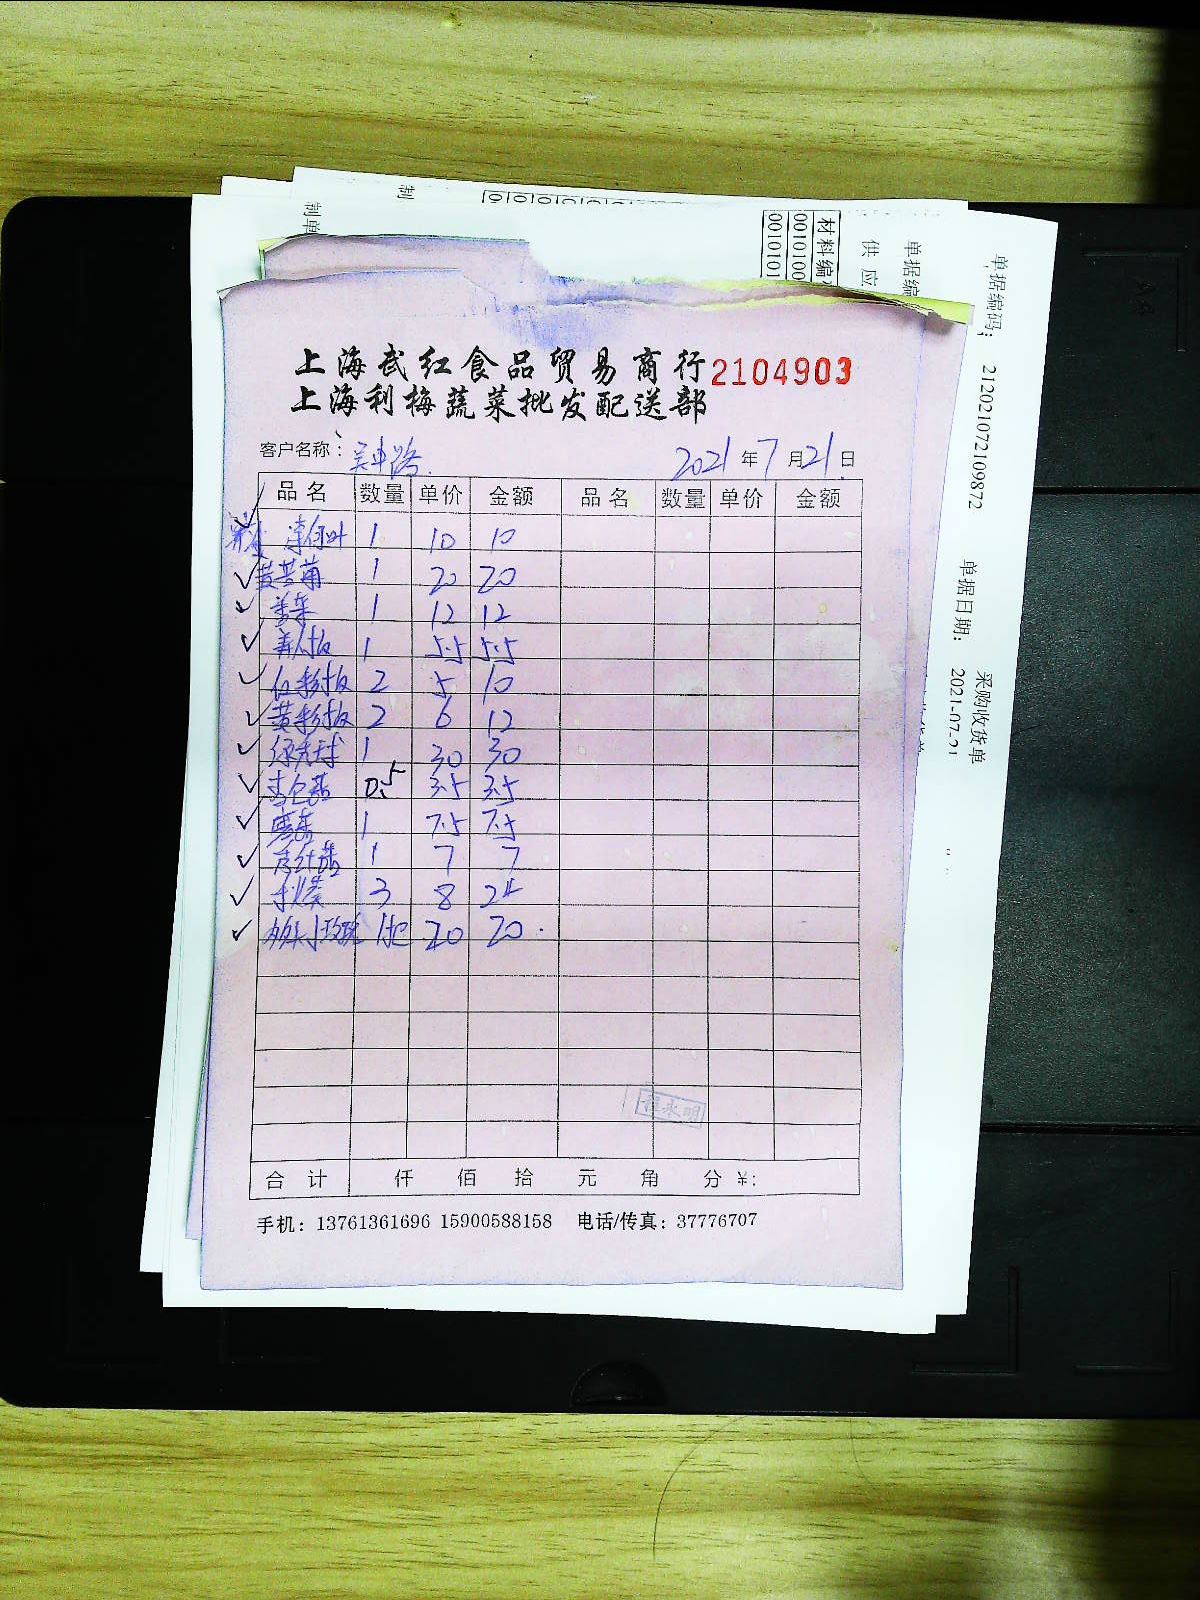 制单
制
材料编
0010100
0010101
供应
单据编
单据编码: 212021072109872
单据日期: 2021-07-21
采购收货单
上海武红食品贸易商行 2104903
上海利梅蔬菜批发配送部
客户名称: 吴中路 2021年7月21日
品名 数量 单价 金额 品名 数量 单价 金额
1 10 10
黄苦菊 1 20 20
1 12 12
1 5.5 5.5
红彩椒 2 5 10
黄彩椒 2 6 12
1 30 30
0.5 3.5 3.5
1 7.5 7.5
1 7 7
秋葵 3 8 24
小玫瑰 1把 20 20.
程永明
合计 仟 佰 拾 元 角 分 ¥:
手机: 13761361696 15900588158 电话/传真: 37776707